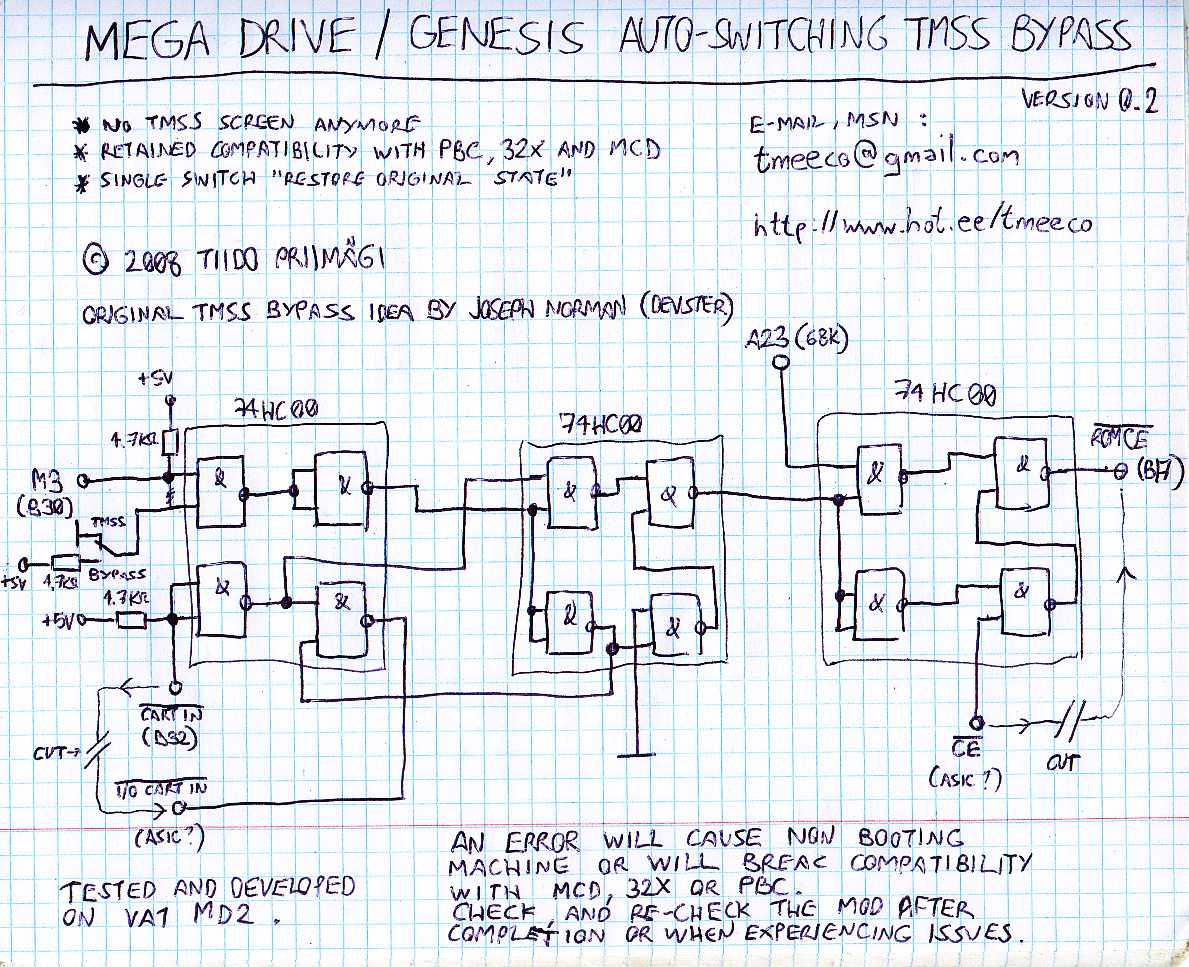 MEGA DRIVE / GENESIS AUTO-SWITCHING TMSS BYPASS
VERSION 0.2
* NO TMSS SCREEN ANYMORE
* RETAINED COMPATIBILITY WITH PBC, 32X AND MCD
* SINGLE SWITCH "RESTORE ORIGINAL STATE"
E-MAIL, MSN :
tmeeco@gmail.com
http://www.hot.ee/tmeeco
© 2008 TIIDO PRIIMÄGI
ORIGINAL TMSS BYPASS IDEA BY JOSEPH NORMAN (DEVSTER)
A23 (68K)
+5V
74HC00
74HC00
74HC00
4.7KΩ
ROMCE
(B17)
M3
(B30)
& & & & & &
TMSS
BYPASS
+5V 4.7KΩ
4.7KΩ
+5V
& & & & & &
CART IN
(B32)
CUT→
I/O CART IN
(ASIC?)
CE
(ASIC?)
CUT
AN ERROR WILL CAUSE NON BOOTING
MACHINE OR WILL BREAK COMPATIBILITY
WITH MCD, 32X OR PBC.
CHECK, AND RE-CHECK THE MOD AFTER
COMPLETION OR WHEN EXPERIENCING ISSUES.
TESTED AND DEVELOPED
ON VA1 MD2.